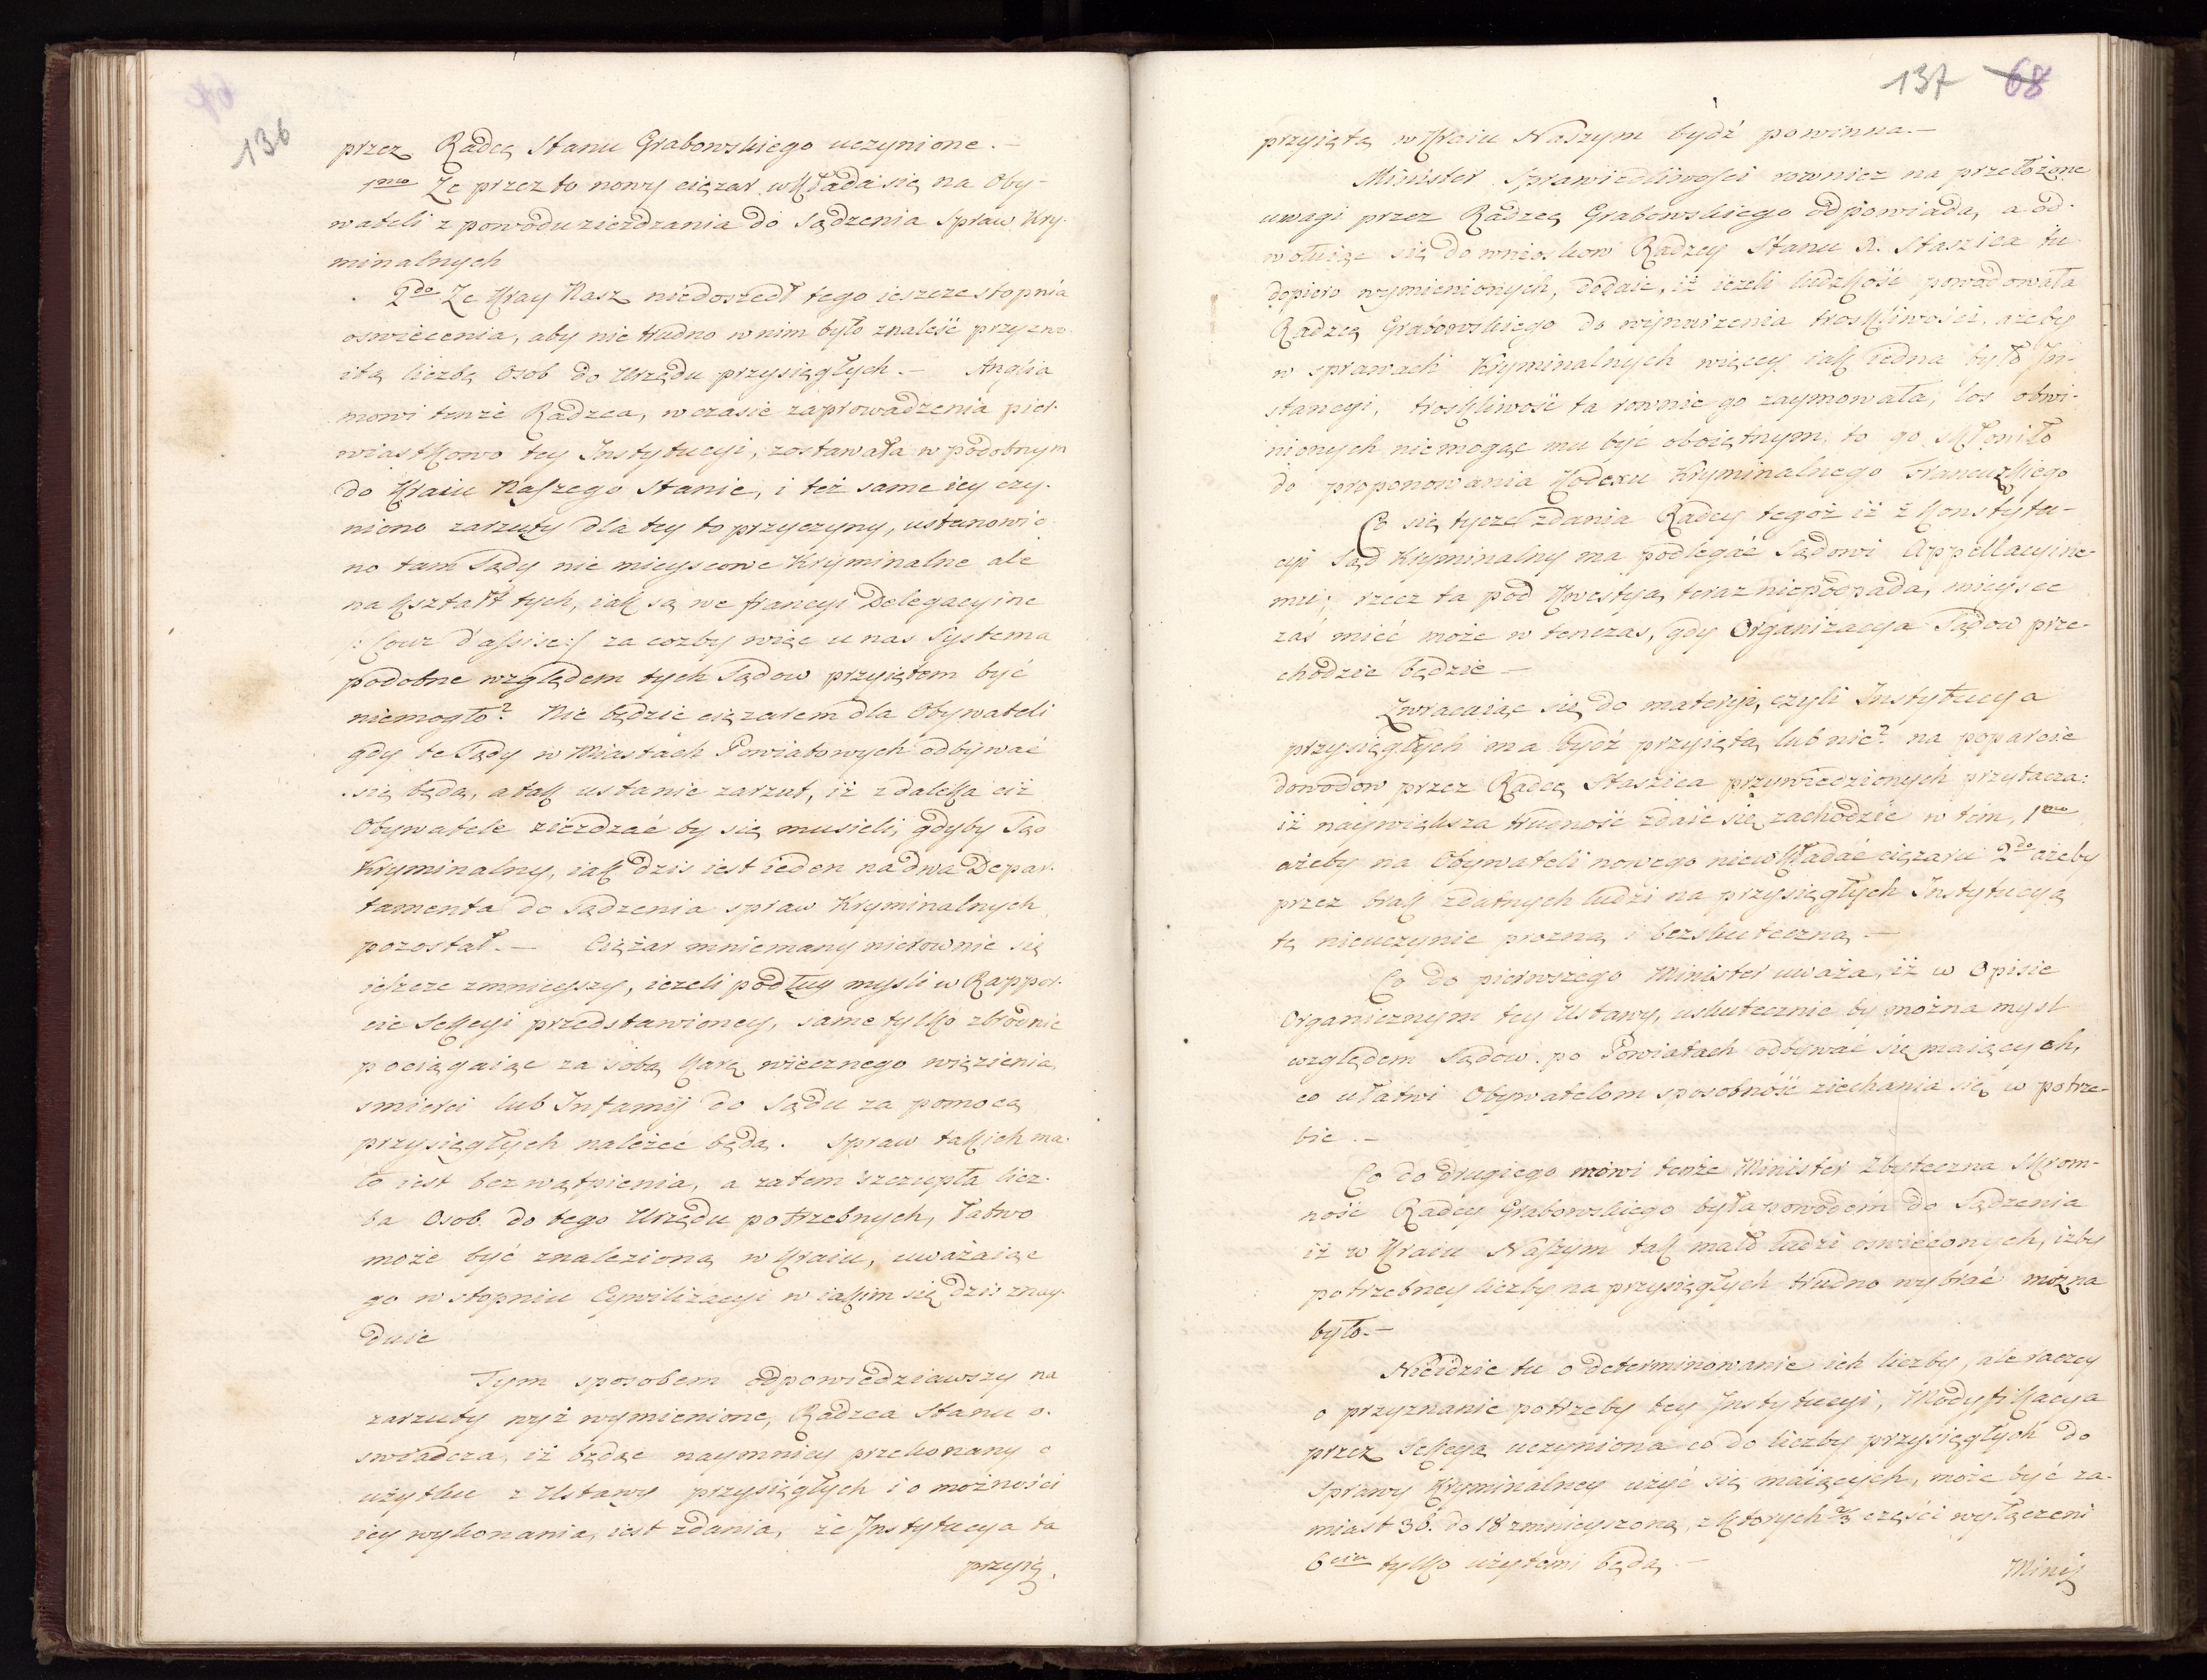 136
przez Radcę Stanu Grabowskiego uczynione. –
1mo Że przez to nowy ciężar wkłada się na Oby-
wateli z powodu ziezdzania do Sądzenia Spraw Kry-
minalnych
2do Że Kray Nasz niedoszedł tego ieszcze stopnia
oswiecenia, aby nie trudno w nim było znaleść przyzwo-
itą liczbę Osob do Urzędu przysięgłych. – Anglia
mowi tenże Radzca, w czasie zaprowadzenia pier-
wiastkowo tey Instytucyi, zostawała w podobnym
do Kraiu Naszego Stanie, i też same iey czy-
niono zarzuty dla tey to przyczyny, ustanowio
no tam Sądy nie mieyscowe Kryminalne ale
na kształt tych, iak są we francyi Delegacyine
/: Cour d'assise :/ za cozby więc u nas Systema
podobne względem tych Sądow przyiętem być
niemogło? Nie będzie ciężarem dla Obywateli
gdy te Sądy w Miastach Powiatowych odbywać
się będą, a tak ustanie zarzut, iż z daleka ciż
Obywatele ziezdzać by się musieli, gdyby Sąd
Kryminalny, iak dzis iest ieden na dwa Depar-
tamenta do Sądzenia spraw Kryminalnych
pozostał. – Ciężar mniemany nierownie się
ieszcze zmnieyszy, ieżeli podług mysli w Rappor-
cie Sekcyi przedstawioney, same tylko zbrodnie
pociągaiąc za sobą karę wiecznego więzienia,
smierci lub Infamij do Sądu za pomocą
przysięgłych należeć będą. Spraw takich ma-
ło iest bez wątpienia, a zatem szczupła licz-
ba Osob do tego Urzędu potrzebnych, łatwo
może być znalezioną w Kraiu, uważaiąc
go w stopniu Cywilizacyi w iakim się dzis znay-
duie
Tym sposobem odpowiedziawszy na
zarzuty wyż wymienione, Radzca Stanu o-
swiadcza, iż będąc naymniey przekonany o
użytku z Ustawy przysięgłych i o możności
iey wykonania, iest zdania, że Instytucya ta
przyię,
137 68
przyiętą w Kraiu Naszym bydź powinna. –
Minister Sprawiedliwości rownież na przełożone
uwagi przez Radzcę Grabowskiego odpowiada, a od-
wołuiąc się do wniosków Radzcy Stanu X. Staszica tu
dopiero wymienionych, dodaie, iż ieżeli ludzkość powodowała
Radzcę Grabowskiego do wynurzenia troskliwości, ażeby
w sprawach Kryminalnych więcey iak iedna było In-
stancyi, troskliwość ta rownie go zaymowała, los obwi-
nionych niemogąc mu być oboiętnym, to go skłoniło
do proponowania Kodexu Kryminalnego Francuzkiego
Co się tycze zdania Radcy tegoż iż z Konstytu-
cyi Sąd Kryminalny ma podlegać Sądowi Appellacyine-
mu; rzecz ta pod Kwestyą teraz niepodpada, mieysce
zaś mieć może w tenczas, gdy Organizacya Sądow prze-
chodzic będzie –
Zwracaiąc się do materyi, czyli Instytucya
przysięgłych ma bydź przyiętą lub nie? na poparcie
dowodow przez Radcę Staszica przywiedzionych przytacza:
iż naywiększa trudność zdaie się zachodzić w tem, 1mo
ażeby na Obywateli nowego niewkładać ciężaru 2do ażeby
przez brak zdatnych ludzi na przysięgłych Instytucyą
tę nieuczynic prozną i bezskuteczną –
Co do pierwszego Minister uważa, iż w Opisie
Organicznym tey Ustawy, uskutecznic by można mysl
względem Sądow po Powiatach odbywać się maiących,
co ułatwi Obywatelom sposobność ziechania się w potrze-
bie. –
Co do drugiego mówi tenże Minister Zbyteczna Skrom-
ność Radcy Grabowskiego była powodem do Sądzenia
iż w Kraiu Naszym tak mało ludzi oswieconych, iżby
potrzebney liczby na przysięgłych trudno wybrać można
było. –
Nieidzie tu o determinowanie ich liczby, ale raczey
o przyznanie potrzeby tey Instytucyi, Modyfikacya
przez Sekcyą uczyniona co do liczby przysięgłych do
Sprawy Kryminalney użyć się maiących, może być za-
miast 36. do 18 zmnieyszoną, z których 2/3 części wyłączeni
6ciu tylko użytemi będą –
Minis